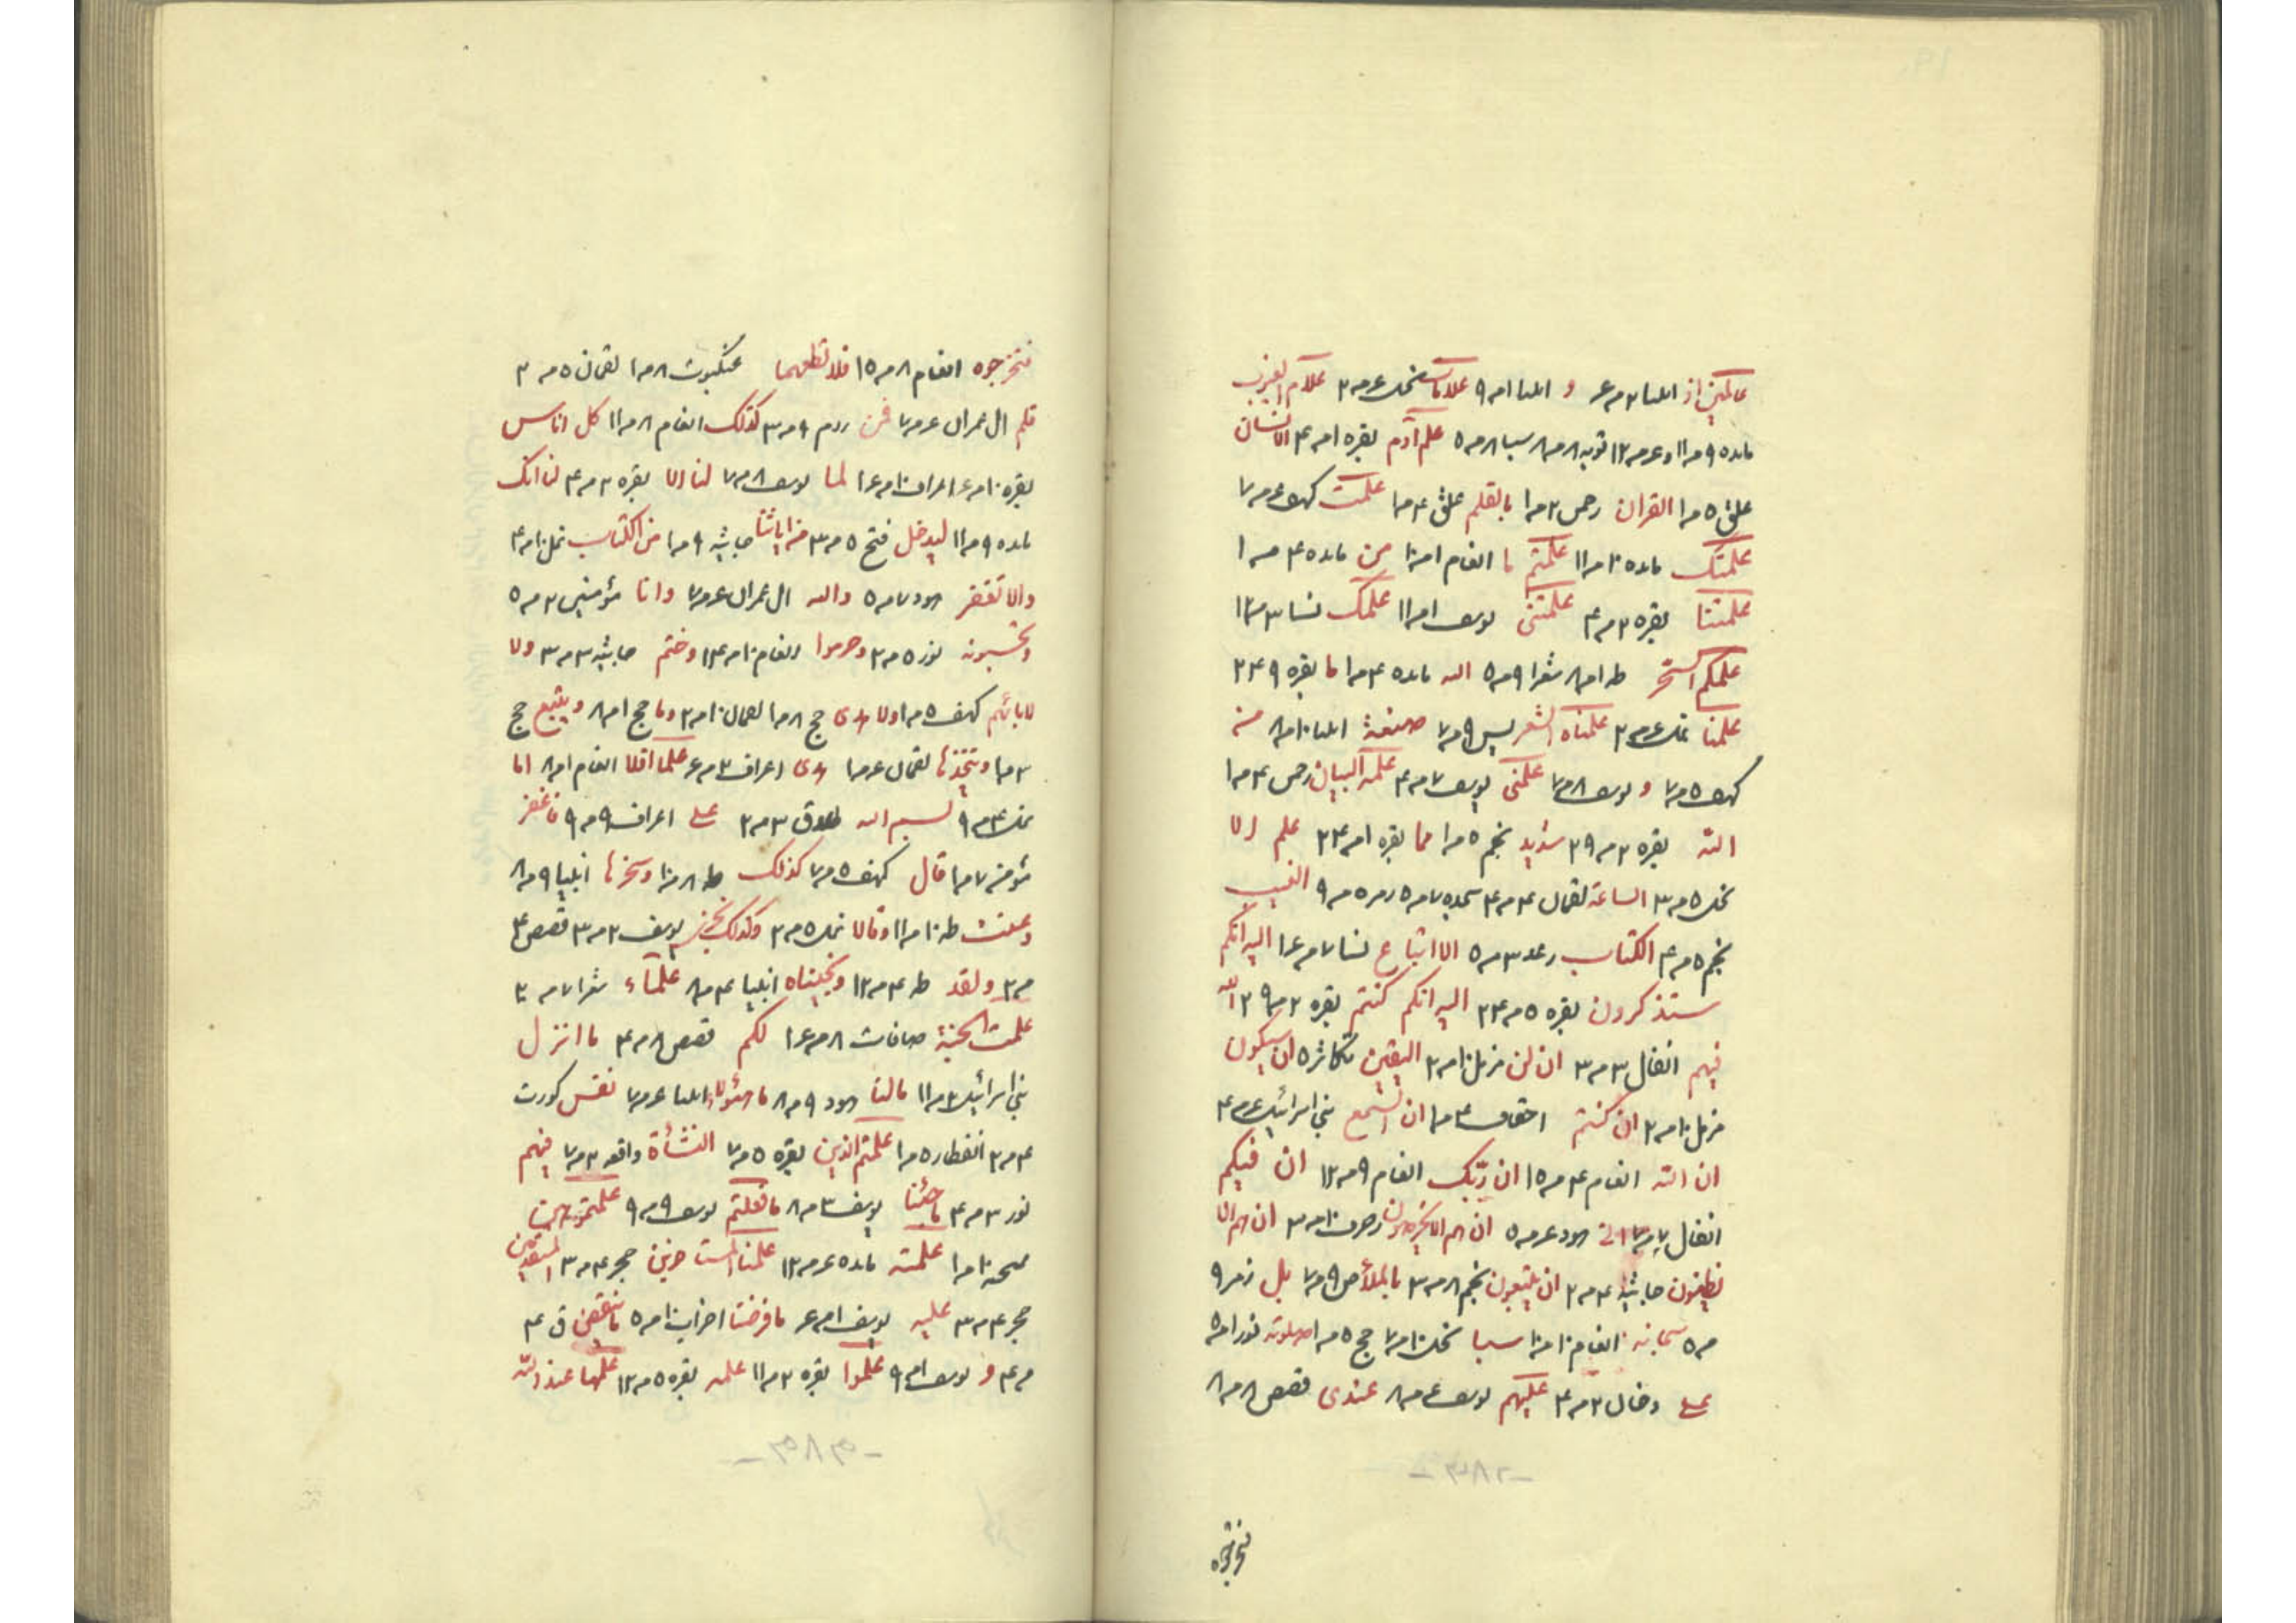 عالمین از انبیا ۲ مر ع و انبیا ا مر ۹ علامات نحل ع مر ۲ علام الغیوب
مائده ۹ مر ۱۱ و ع مر ۱۲ توبه ۸ مر ۸ سبا ۸ مر ۵ علم آدم بقره ا مر ۴ الانسان
علق ۵ مر ا القران رحمن ۲ مر ا بالقلم علق ۴ مر ا علمت کهف ع مر ۷
علمتک مائده ۱۰ مر ۱۱ علمتم ما انعام ا مر ۱۰ من مائده ۴ مر ا
علمتنا بقره ۲ مر ۴ علمتنی یوسف ا مر ۱۱ علمک نسا ۳ مر ۱۲
علمکم السحر طه ا مر ۸ شعرا ۹ مر ۵ الله مائده ۴ مر ا ما بقره ۹ ۲۴
علمنا نمل ع مر ۲ علمناه الشعر یس ۹ مر ۷ صنعة انبیا ۱۰ مر ۸ من
کهف ۵ مر ۷ و یوسف ۸ مر ۷ علمنی یوسف ۷ مر ۴ علمه البیان رحمن ۴ مر ا
الله بقره ۲ مر ۲۹ شدید نجم ۵ مر ا مما بقره ا مر ۲۴ علم الا
نحل ۵ مر ۳ الساعة لقمان ۴ مر ۴ سجده ۷ مر ۵ زمر ۵ مر ۹ الغیب
نجم ۵ مر ۴ الکتاب رعد ۳ مر ۵ الا اتباع نسا ۷ مر ع ا الیه انکم
ستذکرون بقره ۵ مر ۲۴ الیه انکم کنتم بقره ۲ مر ۲۹ الله
فیهم انفال ۳ مر ۳ ان لن مزمل ۱۰ مر ۲ الیقین تکاثر ۵ ان سیکون
مزمل ۱۰ مر ۲ ان کنتم احقاف ۴ مر ا ان السمع بنی اسرائیل ع مر ۴
ان الله انعام ۴ مر ۱۵ ان ربک انعام ۹ مر ۱۲ ان فیکم
انفال ۷ مر ۷ انی هود ع مر ۵ ان هم الا یخرصون زخرف ۱۰ مر ۳ ان هم الا
یظنون جاثیه ۴ مر ۲ ان یتبعون نجم ۸ مر ۳ بالملأ ص ۹ مر ۷ بل زمر ۹
مر ۵ سبحانه انعام ۱۰ مر ۱۰ سبا نحل ۱۰ مر ۷ حج ۵ مر ا صلوته نور ا مر ۵
علی دخان ۲ مر ۴ علیهم یوسف ع مر ۸ عندی قصص ۸ مر ۸
فتخرجوه
فتخرجوه انعام ۸ مر ۱۵ فلا تطعهما عنکبوت ۸ مر ا لقمان ۵ مر ۲
فلم ال عمران ع مر ۷ فمن روم ۹ مر ۳ کذلک انعام ۸ مر ۱۱ کل اناس
بقره ۱۰ مر ع اعراف ۱۰ مر ع ا لما یوسف ۸ مر ۷ لنا الا بقره ۲ مر ۴ لنا انک
مائده ۹ مر ۱۱ لیدخل فتح ۵ مر ۳ من ایاتنا جاثیه ۹ مر ا من الکتاب نمل ۱۰ مر ۴
والا تغفر هود ۷ مر ۵ والله ال عمران ع مر ۷ وانا مؤمنین ۲ مر ۵
وتحسبونه نور ۵ مر ۲ وحرموا انعام ۱۰ مر ۱۴ وختم جاثیه ۳ مر ۳ ولا
لابائهم کهف ۵ مر ا ولا هدی حج ۸ مر ا لقمان ۱۰ مر ۲ وما حج ا مر ۸ ویتبع حج
۳ مر ا ویتخذها لقمان ع مر ا هدی اعراف ۲ مر ع علما افلا انعام ا مر ۸ اما
نمل ۴ مر ۹ لبسم الله طلاق ۳ مر ۲ علی اعراف ۹ مر ۹ فاغفر
مؤمن ۷ مر ا قال کهف ۵ مر ۷ کذلک طه ۸ مر ۱۰ وسخرنا انبیا ۹ مر ۸
وعنت طه ۱۰ مر ۱۱ وقالا نمل ۵ مر ۲ وکذلک نجزی یوسف ۲ مر ۳ قصص ۴
مر ۲ ولقد طه ۴ مر ۱۲ ونجیناه انبیا ۴ مر ۸ علماء شعرا ۷ مر ۲
علمت الجنة صافات ۸ مر ع ا لکم قصص ۸ مر ۴ ما انزل
بنی اسرائیل ۲ مر ۱۱ مالنا هود ۹ مر ۸ ما هؤلاء انبیا ع مر ۷ نفس کورت
۴ مر ۲ انفطار ۵ مر ا علمتم الذین بقره ۵ مر ۷ النشأة واقعه ۲ مر ۷ فیهم
نور ۳ مر ۴ ما جئنا یوسف ۳ مر ۸ ما فعلتم یوسف ۹ مر ۹ علمتموهن
ممتحنه ۱۰ مر ا علمته مائده ع مر ۱۲ علمنا المستاخرین حجر ۴ مر ۳ المستقدمین
حجر ۴ مر ۳ علیه یوسف ا مر ع ما فرضنا احزاب ۱۰ مر ۵ ما تنقص ق ۴
مر ۴ و یوسف ا مر ۹ علموا بقره ۲ مر ۱۱ علمه بقره ۵ مر ۱۲ علمها عند الله